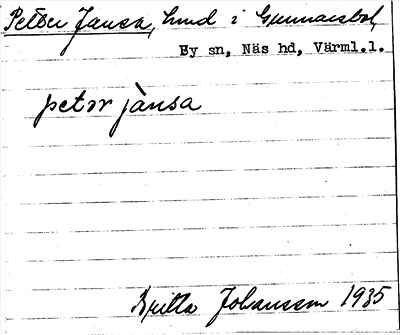 Petter Jansa, hmd i Gunnarsbol,
By sn, Näs hd, Värml.l.
petər jànsa
Britta Johansson 1935